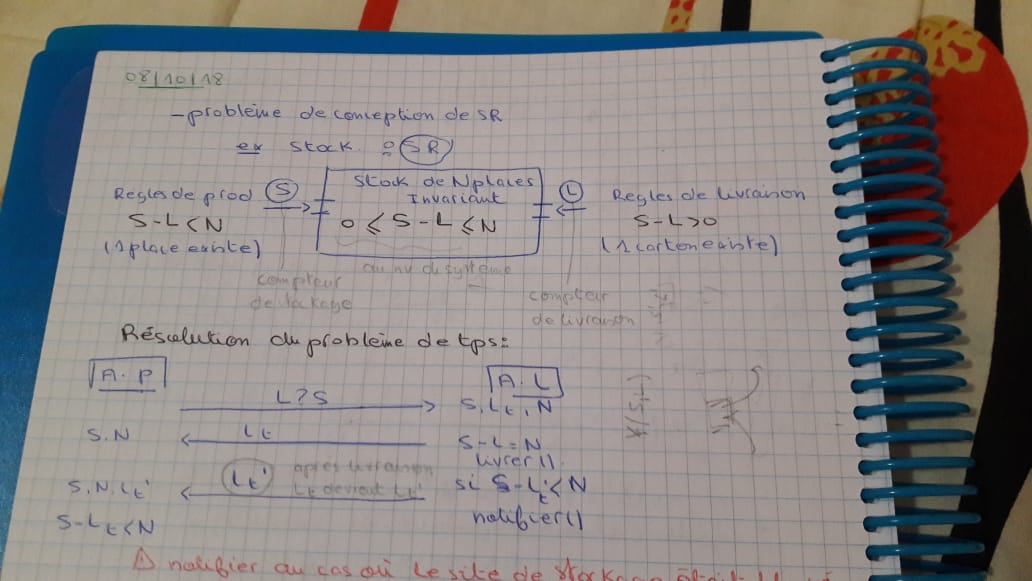 08/10/18
- problème de conception de SR
ex stock : SR
Regles de prod S
S-L<N
(1 place existe)
Stock de N places
Invariant
0 ≤ S-L ≤ N
au nv du système
L Regles de livraison
S-L>0
(1 carton existe)
compteur
de stockage
compteur
de livraison
Résolution du problème de tps:
A.P
A.L
L?S
S, Lt, N
S.N
Lt
S-L=N
livrer()
Lt'
après livraison
Lt devient Lt'
S.N, Lt'
si S-Lt'<N
notifier()
S-Lt<N
⚠ notifier au cas où le site de stockage était